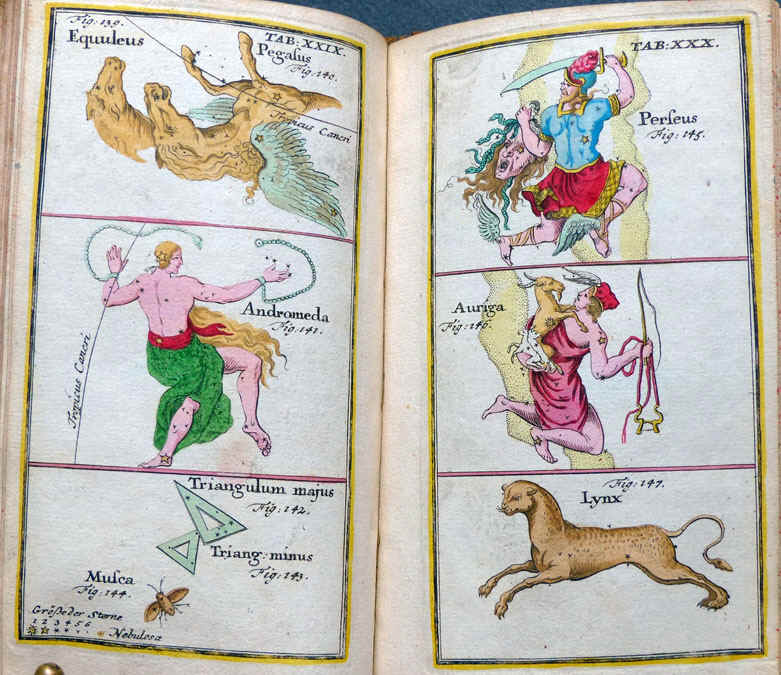 Fig: 139.
Equuleus
TAB: XXIX.
Pegaſus
Fig: 140.
Tropicus Cancri
Andromeda
Fig: 141.
Tropicus Cancri
Triangulum majus
Fig: 142.
Triang. minus
Fig: 143.
Muſca
Fig: 144.
Größe der Sterne
1 2 3 4 5 6
Nebulosa
TAB: XXX.
Perſeus
Fig: 145.
Auriga
Fig: 146.
Fig: 147.
Lynx